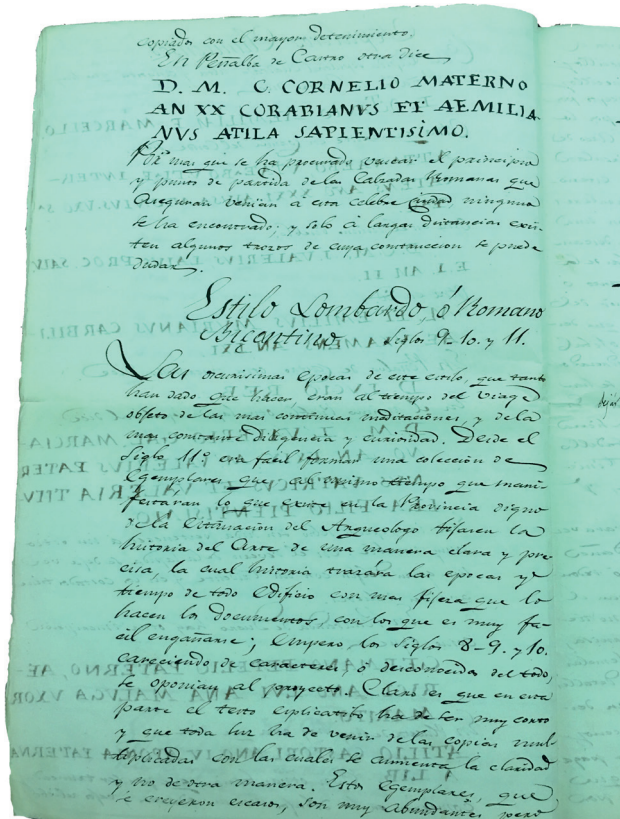 copiados con el mayor detenimiento.
En Peñalba de Castro otra dice
D. M. C. CORNELIO MATERNO
AN XX CORABIANVS ET AEMILIA
NVS ATILA SAPIENTISIMO.
Por mas que se ha procurado buscar el principio
y punto de partida de las Calzadas Romanas que
aseguran venian á esta celebre Ciudad ninguna
se ha encontrado; y solo á largas distancias exis-
ten algunos trozos de cuya construccion se puede
dudar.
Estilo Lombardo ó Romano
Bicentino. Siglos 9-10. y 11.
Las oscurisimas epocas de este estilo, que tanto
han dado que hacer, eran al tiempo del Viage
objeto de las mas continuas meditaciones, y de la
mas constante diligencia y curiosidad. Desde el
Siglo 11º era facil formar una coleccion de
Egemplares que al mismo tiempo que mani-
festarán lo que existe en la Provincia digno
de la Estimacion del Arqueologo fijasen la
historia del Arte de una manera clara y pre-
cisa la cual historia trazára las epocas y
tiempo de todo Edificio con mas fijeza que lo
hacen los documentos, con los que es muy fa-
cil engañarse; Empero, los Siglos 8-9. y 10.
careciendo de caracteres, ó desconocidos del todo,
se oponian al proyecto. Claro es que en esta
parte el testo esplicatibo ha de ser muy corto
y que toda luz ha de venir de las copias mul-
tiplicadas con las cuales se aumenta la claridad
y no de otra manera. Estos Egemplares, que
se creyeron escasos, son muy abundantes pero